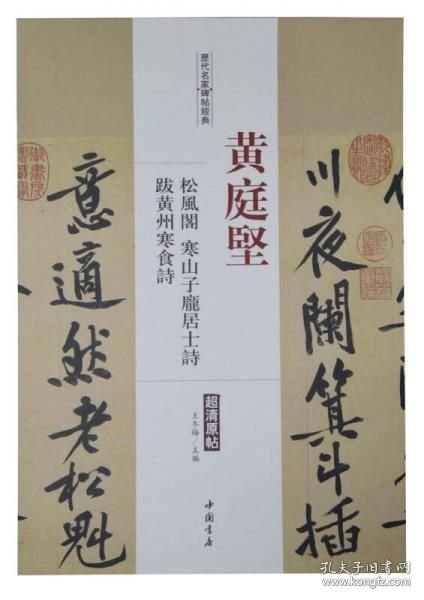 歷代名家碑帖經典
黄庭堅
松風閣 寒山子龐居士詩
跋黄州寒食詩
超清原帖
王冬梅/主編
中国书店
川夜闌箕斗插
意適然老松魁
孔夫子旧书网
www.kongfz.com